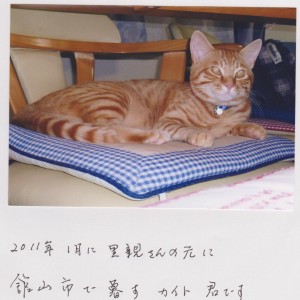 2011年 1月に 里親さんの元に
館山市で 暮す カイト 君です